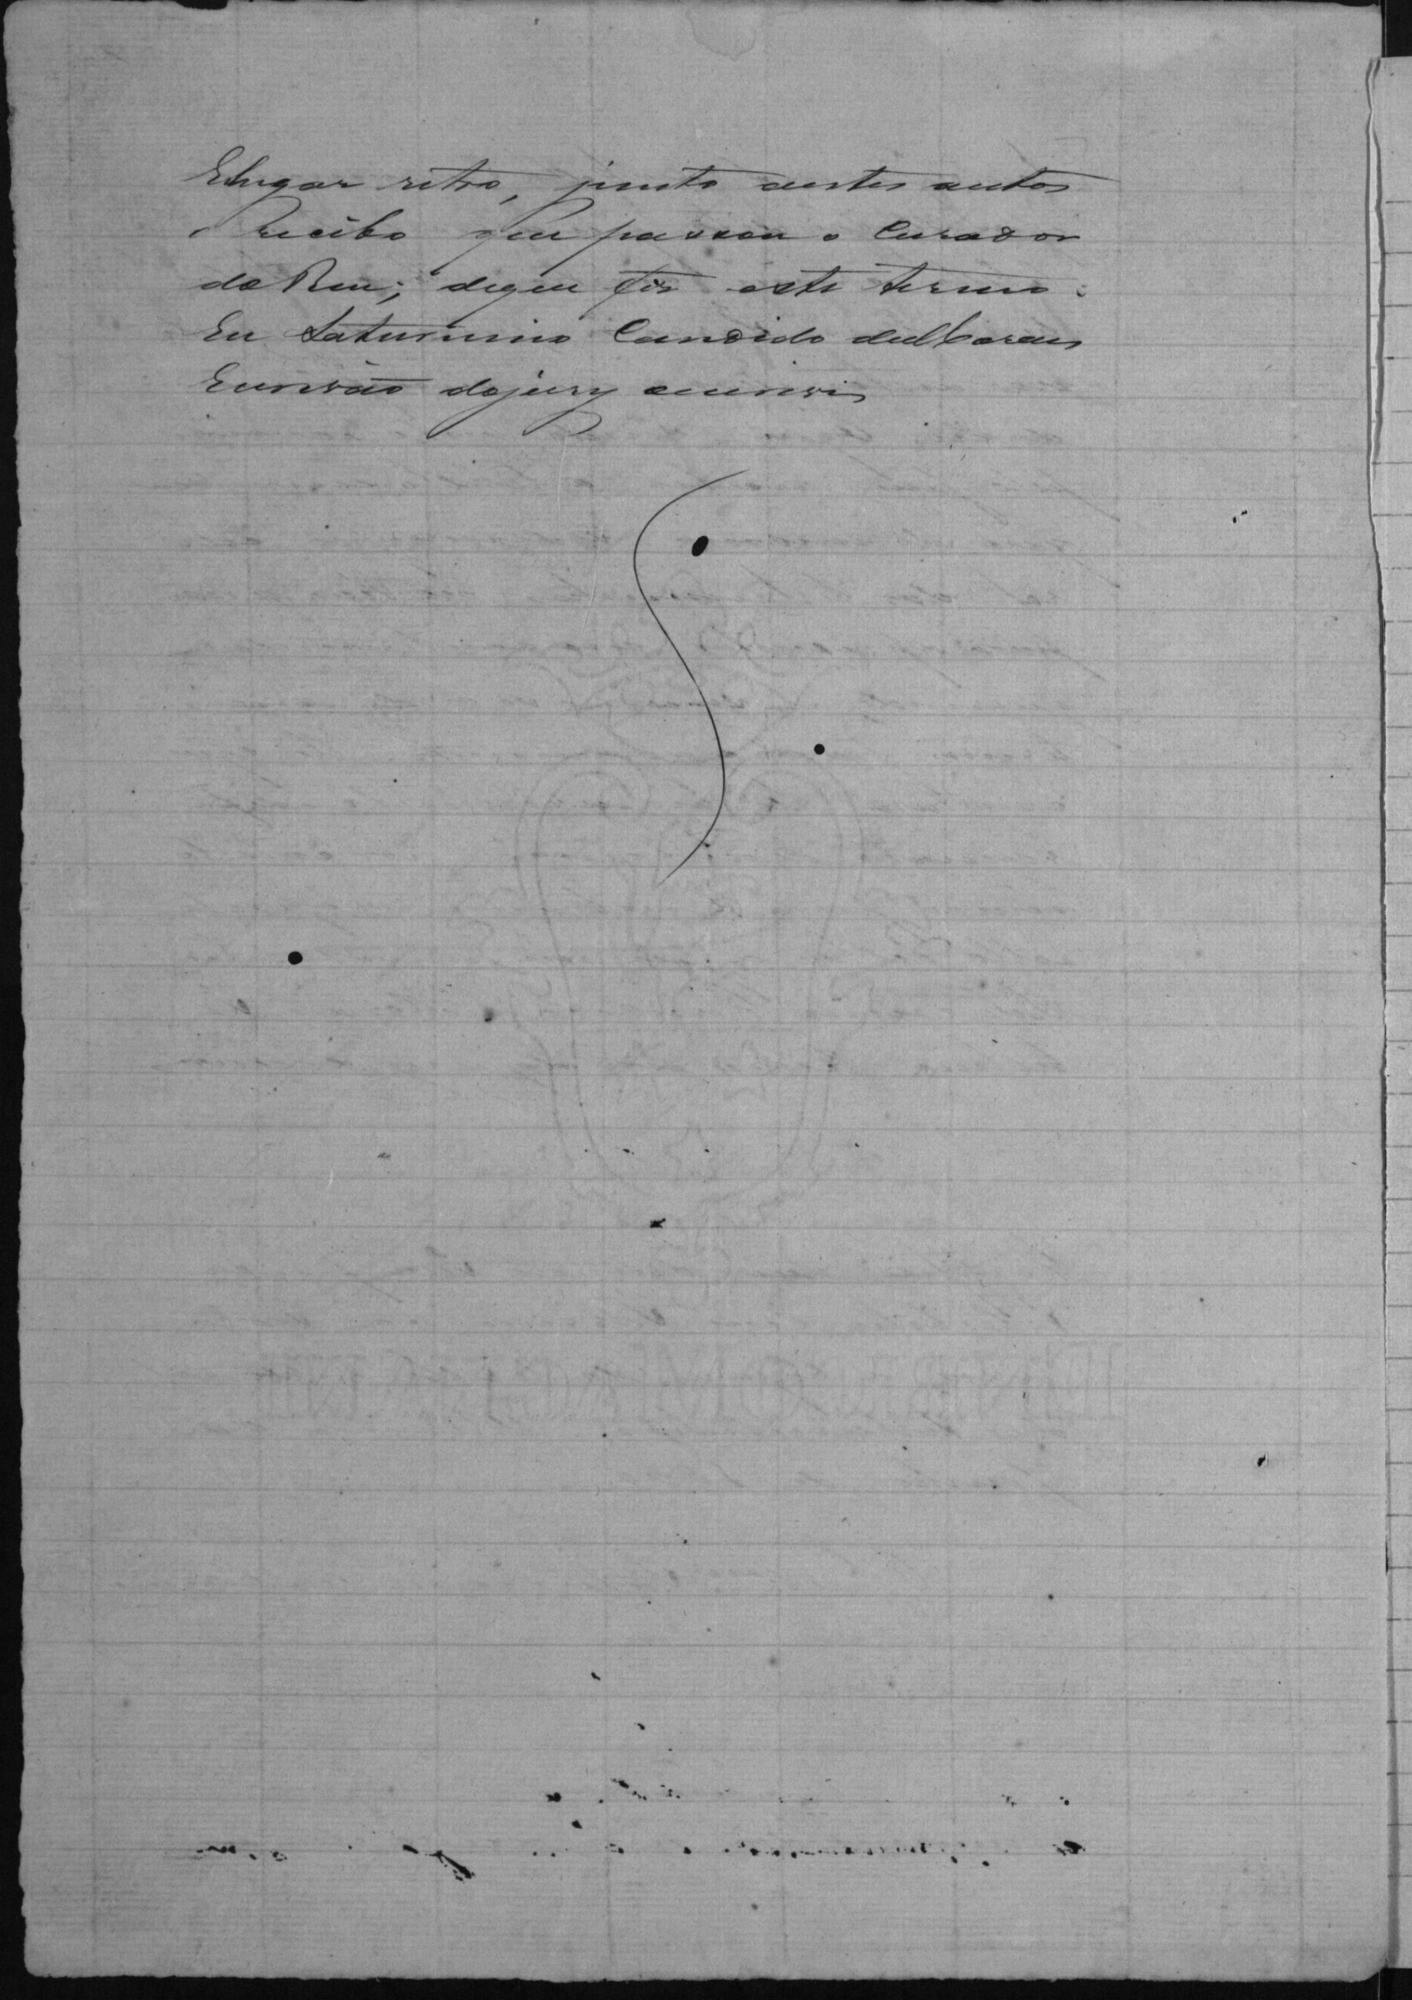 e lugar retro, junto a estes autos
o recibo que passou o Curador
do Reu; de que fiz este termo.
Eu Saturnino Candido de Moraes
Escrivão do jury escrevi